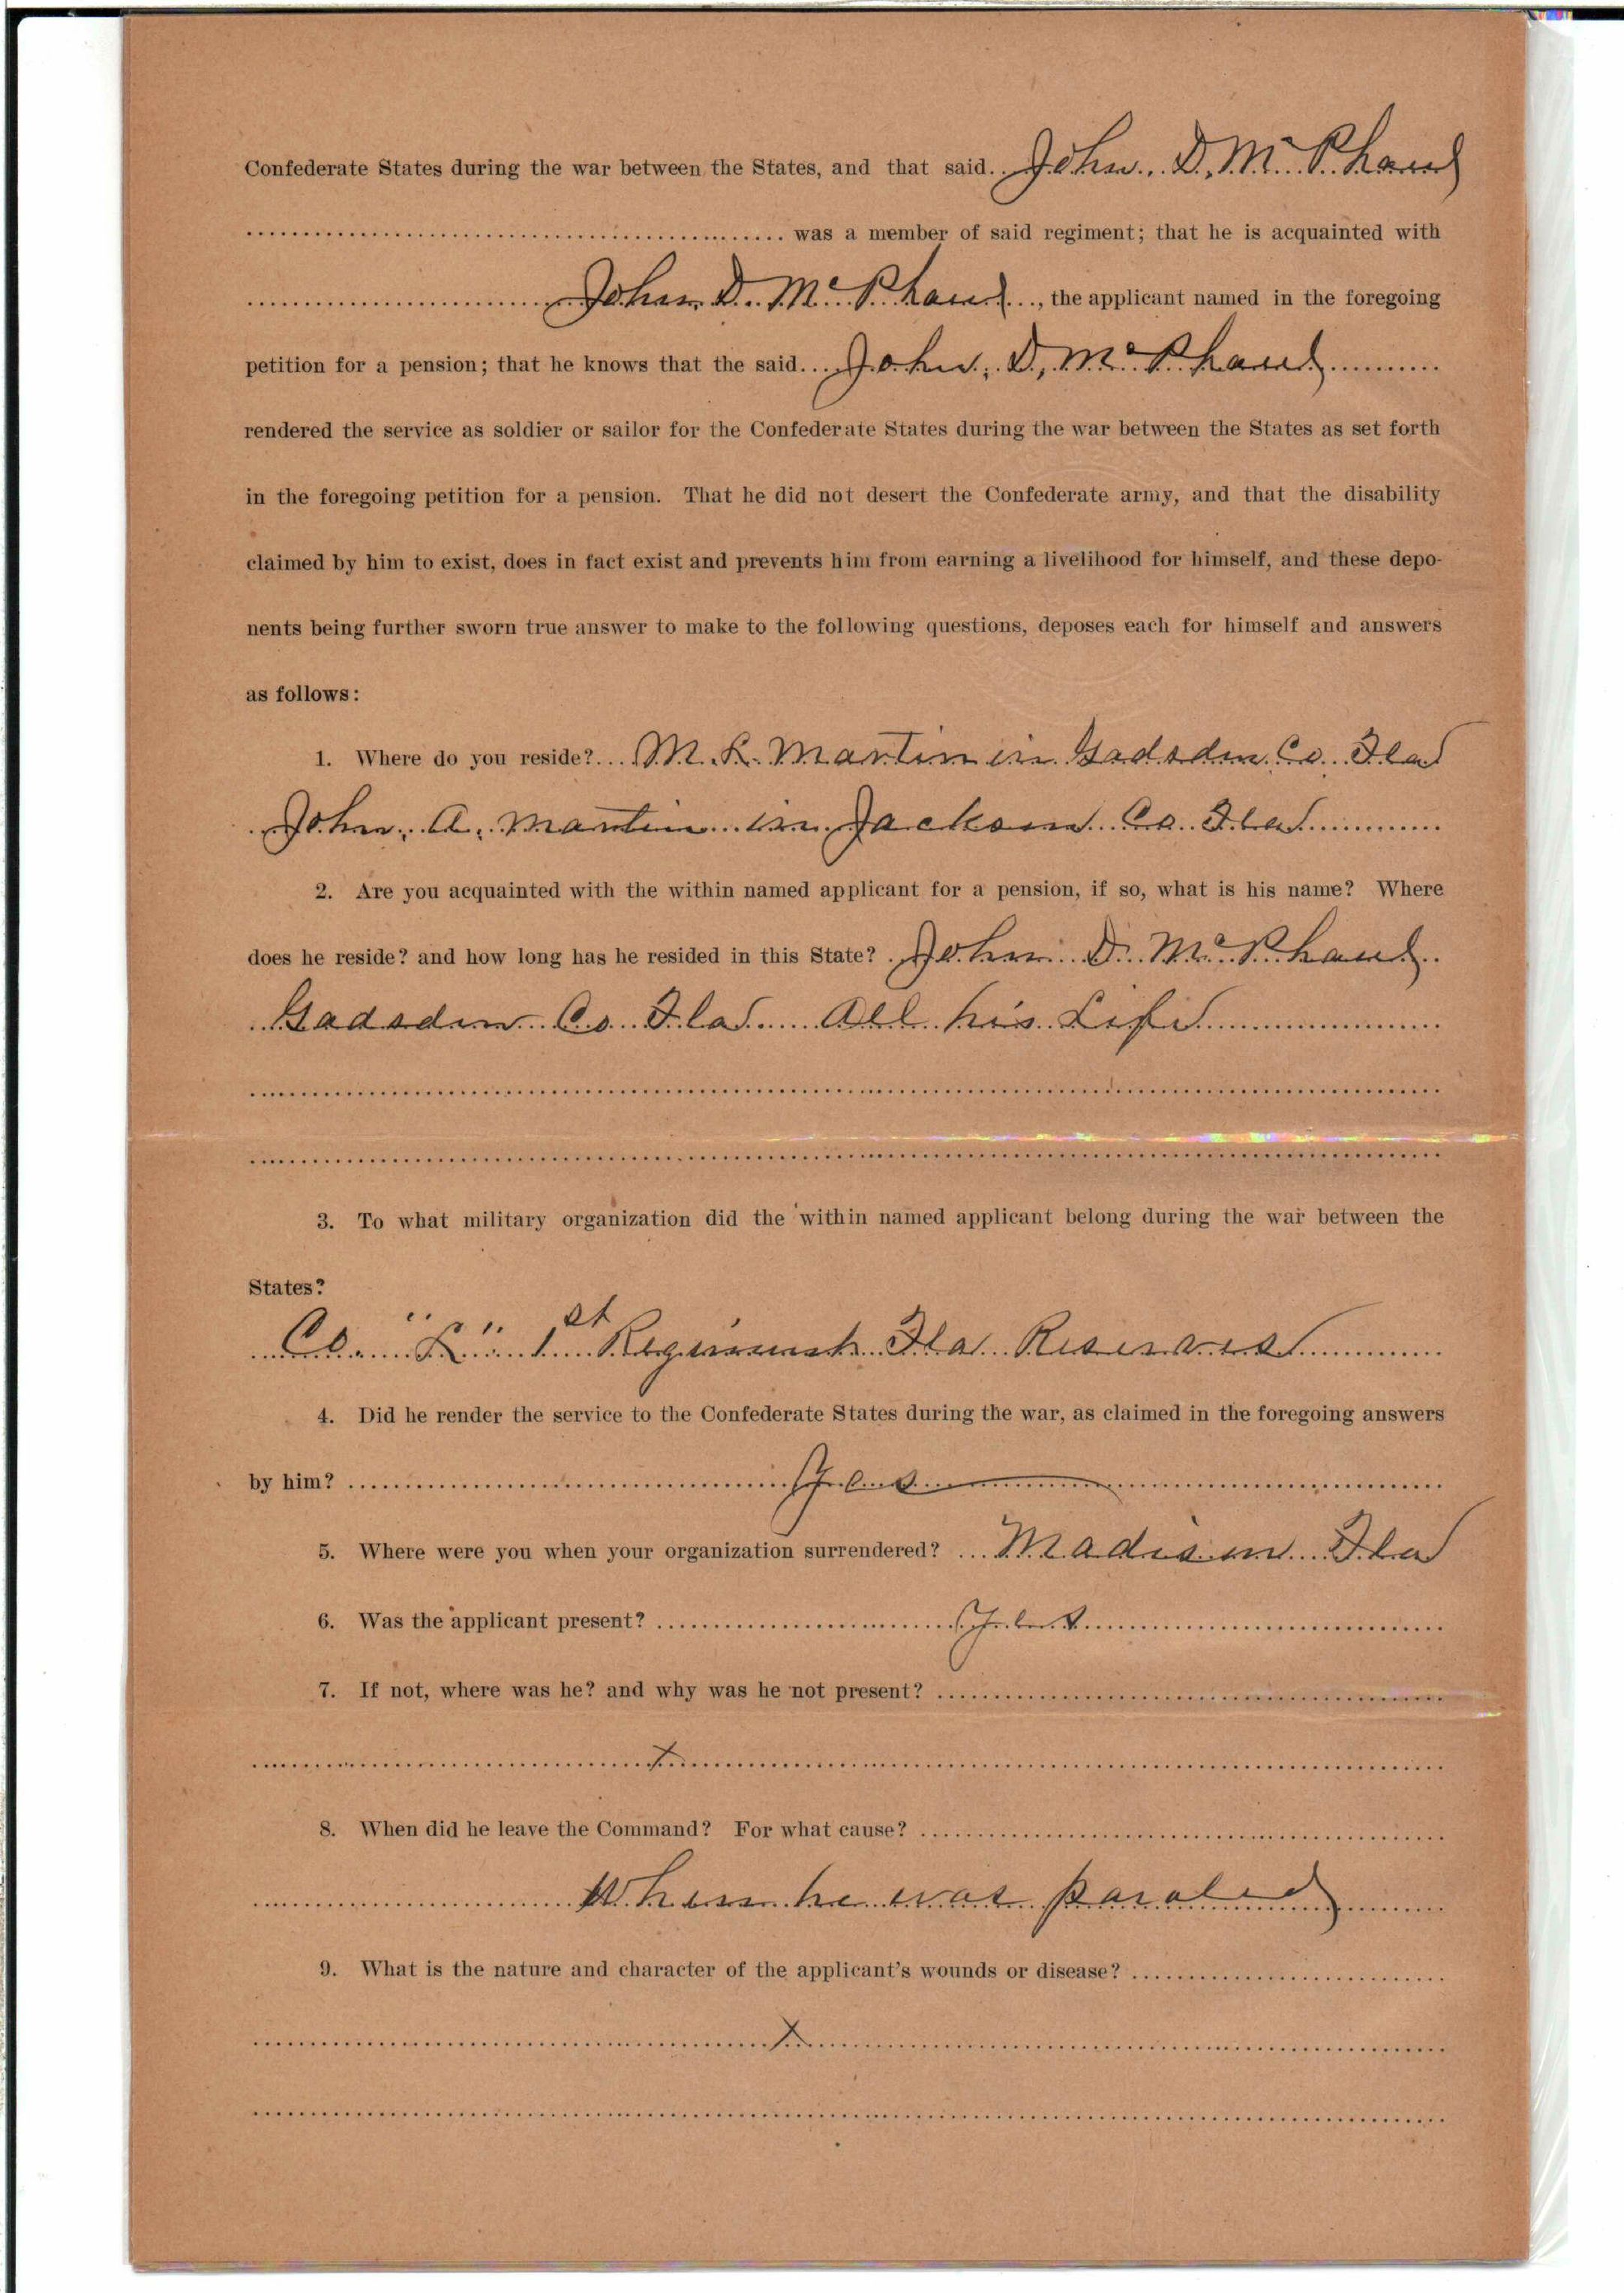 Confederate States during the war between the States, and that said John D. McPhaul
was a member of said regiment; that he is acquainted with
John D. McPhaul, the applicant named in the foregoing
petition for a pension; that he knows that the said John, D, McPhaul
rendered the service as soldier or sailor for the Confederate States during the war between the States as set forth
in the foregoing petition for a pension. That he did not desert the Confederate army, and that the disability
claimed by him to exist, does in fact exist and prevents him from earning a livelihood for himself, and these depo-
nents being further sworn true answer to make to the following questions, deposes each for himself and answers
as follows:
1. Where do you reside? M. Martin in Gadsden Co. Fla
John, A, Martin in Jackson Co. Fla
2. Are you acquainted with the within named applicant for a pension, if so, what is his name? Where
does he reside? and how long has he resided in this State? John D. McPhaul
Gadsden Co. Fla All his Life
3. To what military organization did the within named applicant belong during the war between the
States?
Co. 1st Regiment Fla Reserves
4. Did he render the service to the Confederate States during the war, as claimed in the foregoing answers
by him? Yes
5. Where were you when your organization surrendered? Madison Fla
6. Was the applicant present? Yes
7. If not, where was he? and why was he not present?
x
8. When did he leave the Command? For what cause?
When he was paroled
9. What is the nature and character of the applicant's wounds or disease?
x